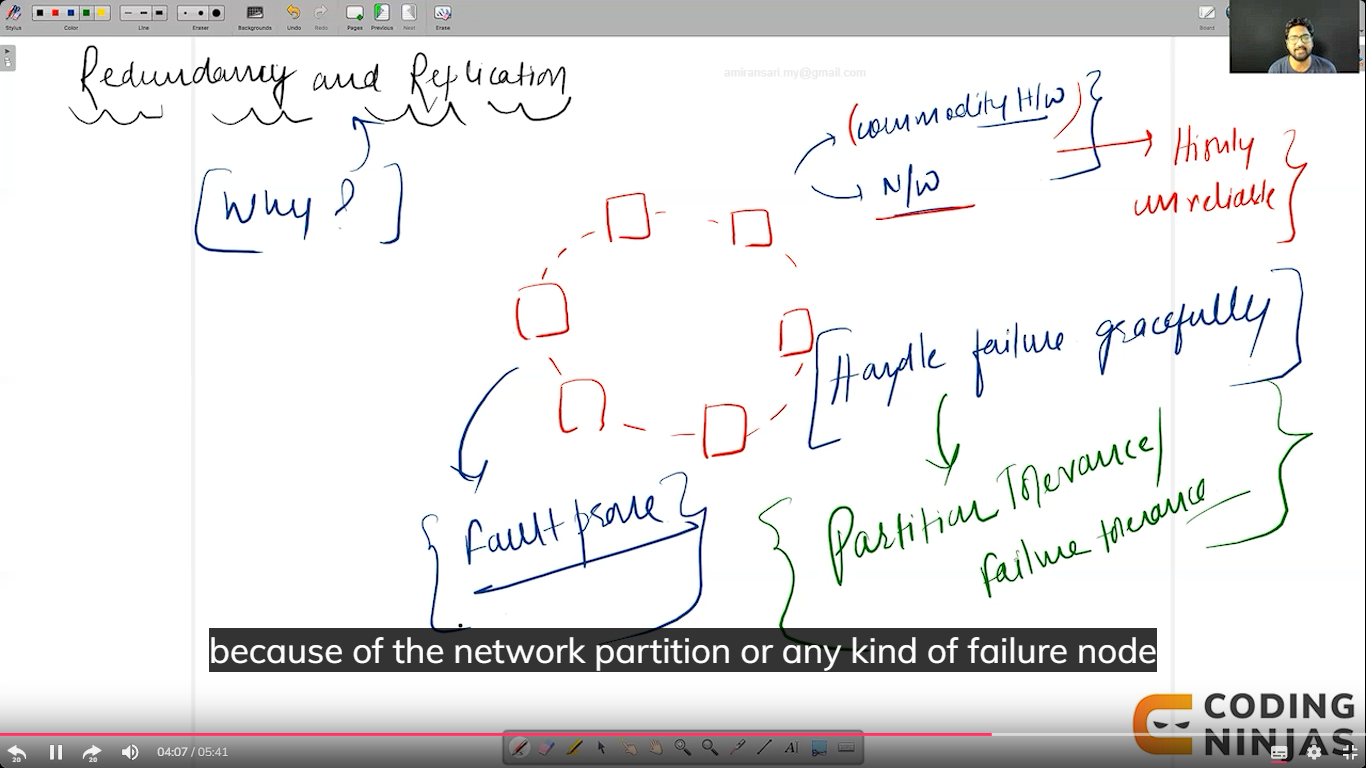 Stylus
Color
Line
Eraser
Backgrounds
Undo
Redo
Pages
Previous
Next
Erase
Board
Redundancy and Replication
amiransari.my@gmail.com
(commodity H/W)
Highly
unreliable
N/W
[Why ?]
Handle failure gracefully
Partition Tolerance/
failure tolerance
Fault prone
because of the network partition or any kind of failure node
CODING
NINJAS
04:07 / 05:41
20
20